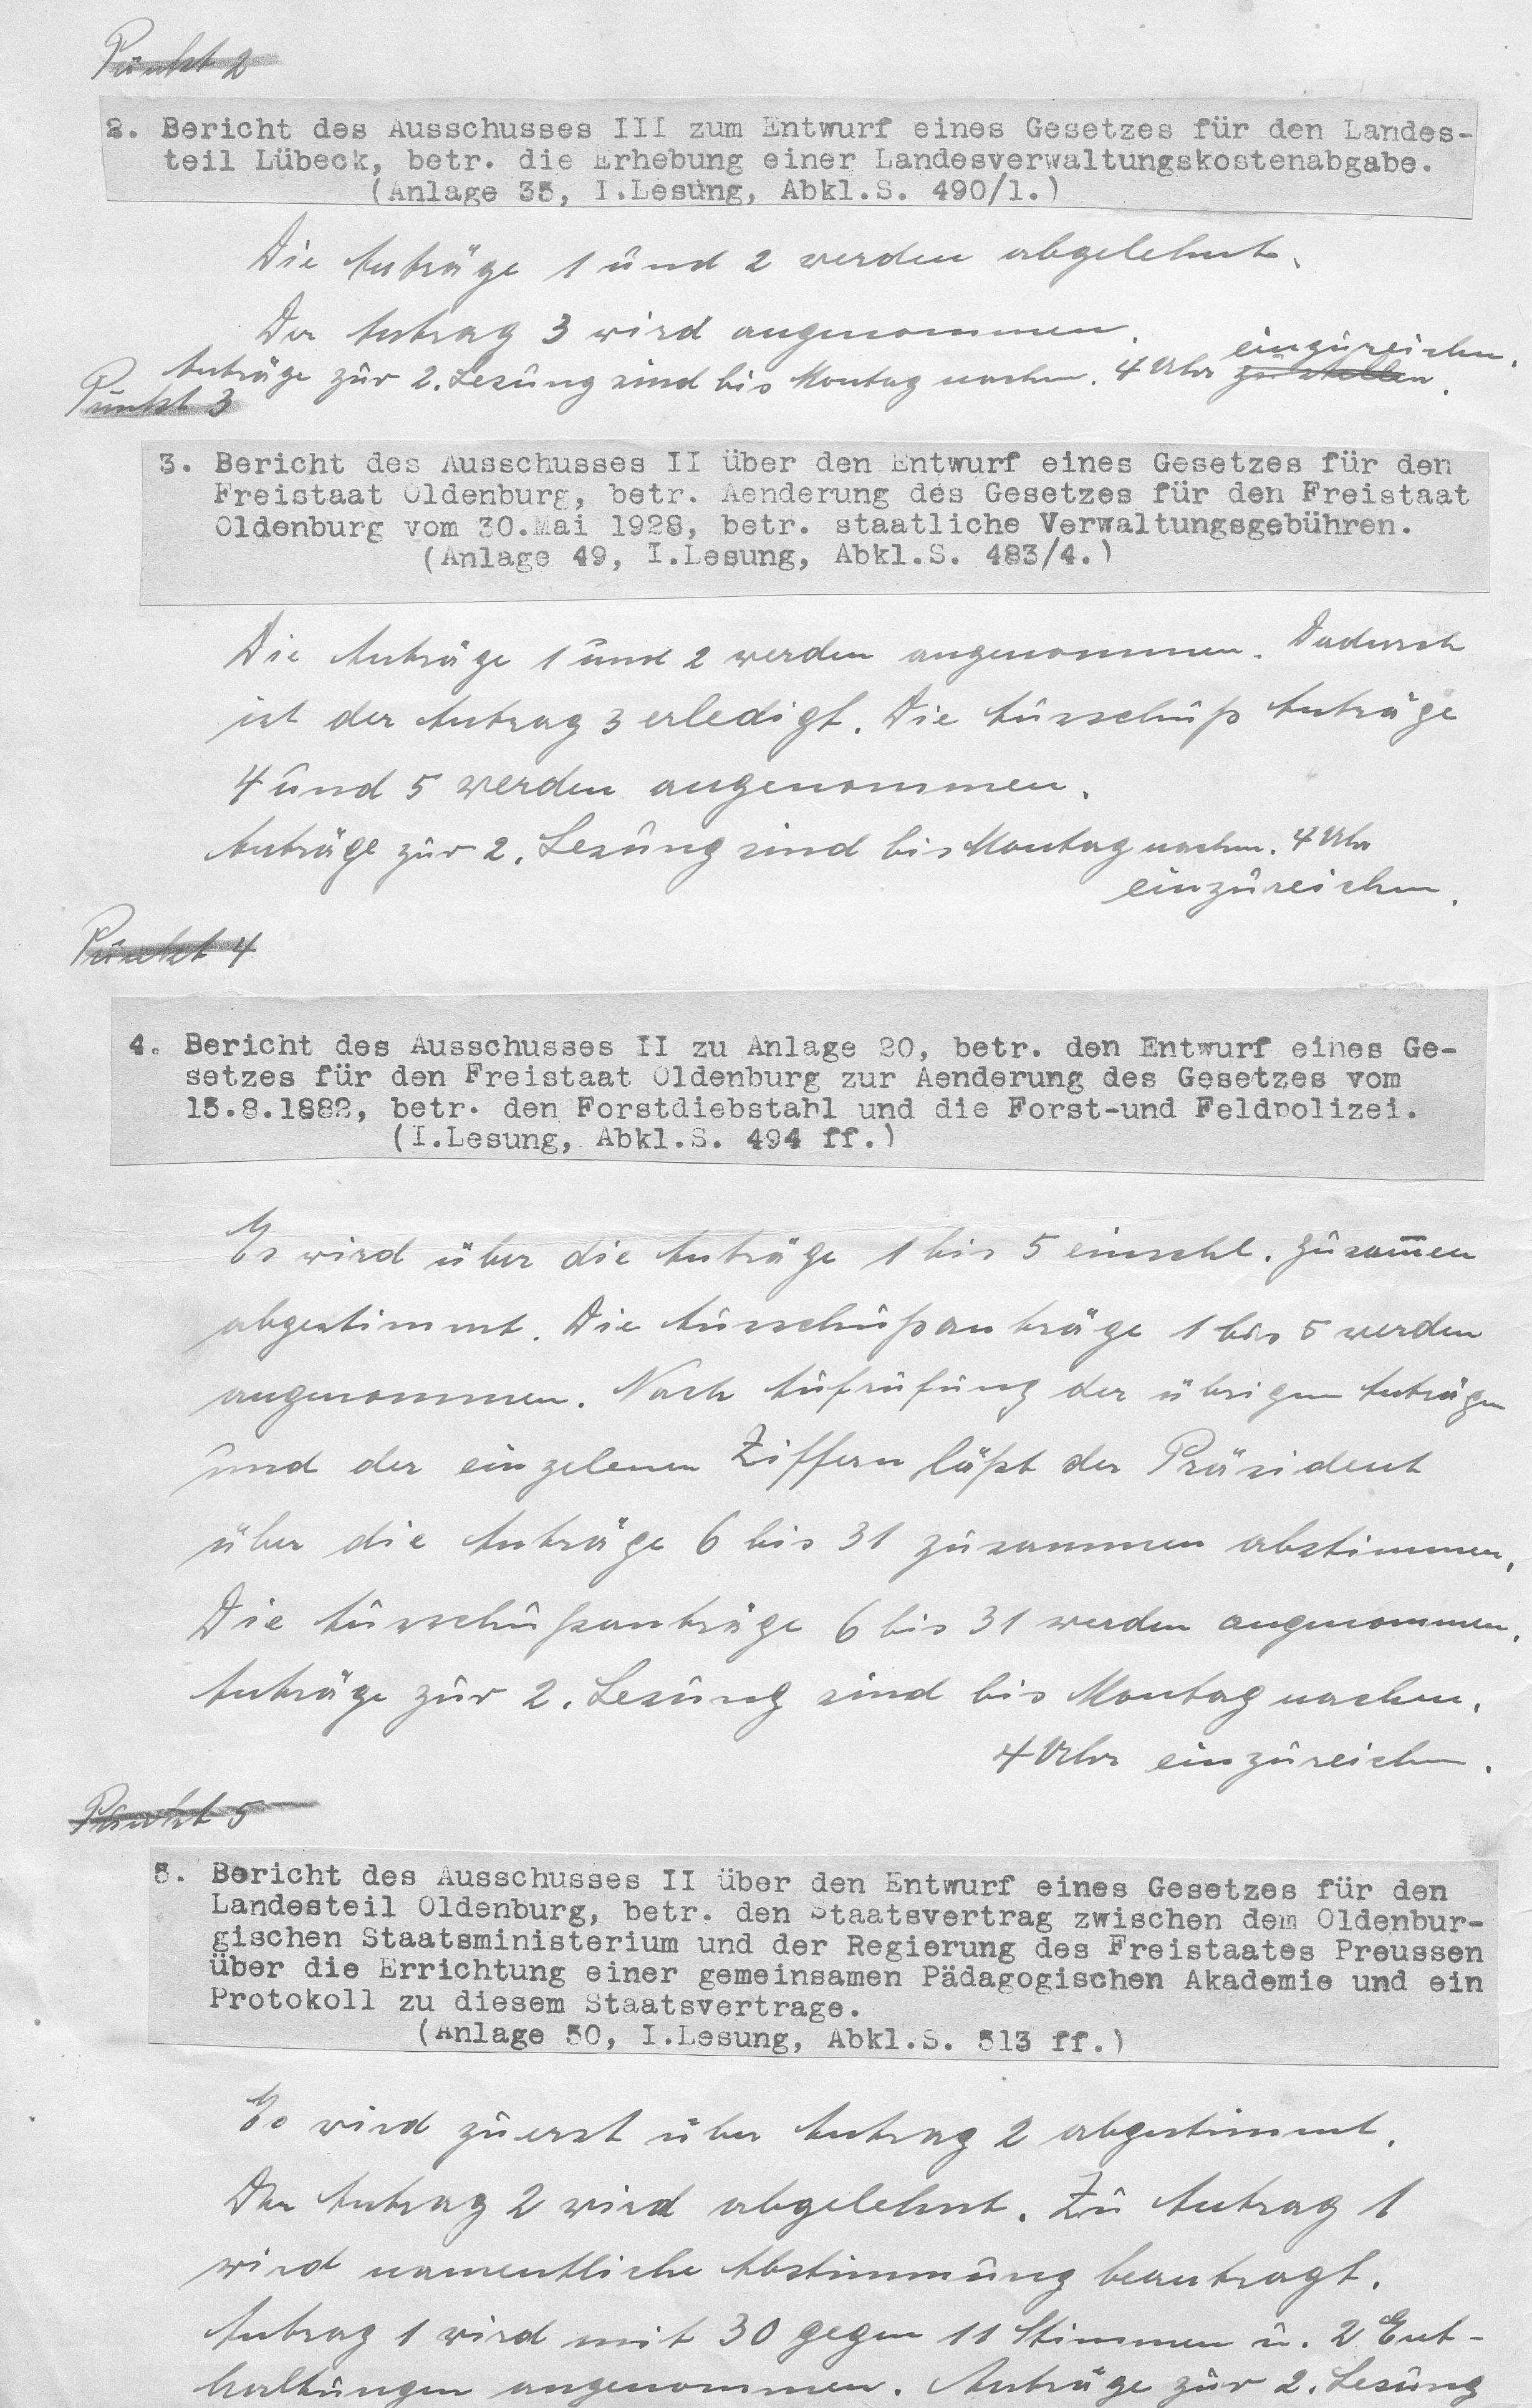 Punkt 2
2. Bericht des Ausschusses III zum Entwurf eines Gesetzes für den Landes-
teil Lübeck, betr. die Erhebung einer Landesverwaltungskostenabgabe.
(Anlage 35, I.Lesung, Abkl.S. 490/1.)
Die Anträge 1 und 2 werden abgelehnt.
Der Antrag 3 wird angenommen.
einzureichen.
Anträge zur 2. Lesung sind bis Montag nachm. 4 Uhr zu stellen.
Punkt 3
3. Bericht des Ausschusses II über den Entwurf eines Gesetzes für den
Freistaat Oldenburg, betr. Aenderung des Gesetzes für den Freistaat
Oldenburg vom 30.Mai 1928, betr. staatliche Verwaltungsgebühren.
(Anlage 49, I.Lesung, Abkl.S. 483/4.)
Die Anträge 1 und 2 werden angenommen. Dadurch
ist der Antrag 3 erledigt. Die Ausschuß Anträge
4 und 5 werden angenommen.
Anträge zur 2. Lesung sind bis Montag nachm. 4 Uhr
einzureichen.
Punkt 4
4. Bericht des Ausschusses II zu Anlage 20, betr. den Entwurf eines Ge-
setzes für den Freistaat Oldenburg zur Aenderung des Gesetzes vom
15.8.1882, betr. den Forstdiebstahl und die Forst-und Feldpolizei.
(I.Lesung, Abkl.S. 494 ff.)
Es wird über die Anträge 1 bis 5 einschl. zusam̅en
abgestimmt. Die Ausschußanträge 1 bis 5 werden
angenommen. Nach Aufrufung der übrigen Anträgen
und der einzelenen Ziffern läßt der Präsident
über die Anträge 6 bis 31 zusammen abstimmen.
Die Ausschußanträge 6 bis 31 werden angenommen.
Anträge zur 2. Lesung sind bis Montag nachm.
4 Uhr einzureichen.
Punkt 5
5. Bericht des Ausschusses II über den Entwurf eines Gesetzes für den
Landesteil Oldenburg, betr. den Staatsvertrag zwischen dem Oldenbur-
gischen Staatsministerium und der Regierung des Freistaates Preussen
über die Errichtung einer gemeinsamen Pädagogischen Akademie und ein
Protokoll zu diesem Staatsvertrage.
(Anlage 50, I.Lesung, Abkl.S. 513 ff.)
Es wird zuerst über Antrag 2 abgestimmt.
Der Antrag 2 wird abgelehnt. Zu Antrag 1
wird namentliche Abstimmung beantragt.
Antrag 1 wird mit 30 gegen 11 Stimmen u. 2 Ent-
haltungen angenommen. Anträge zur 2. Lesung